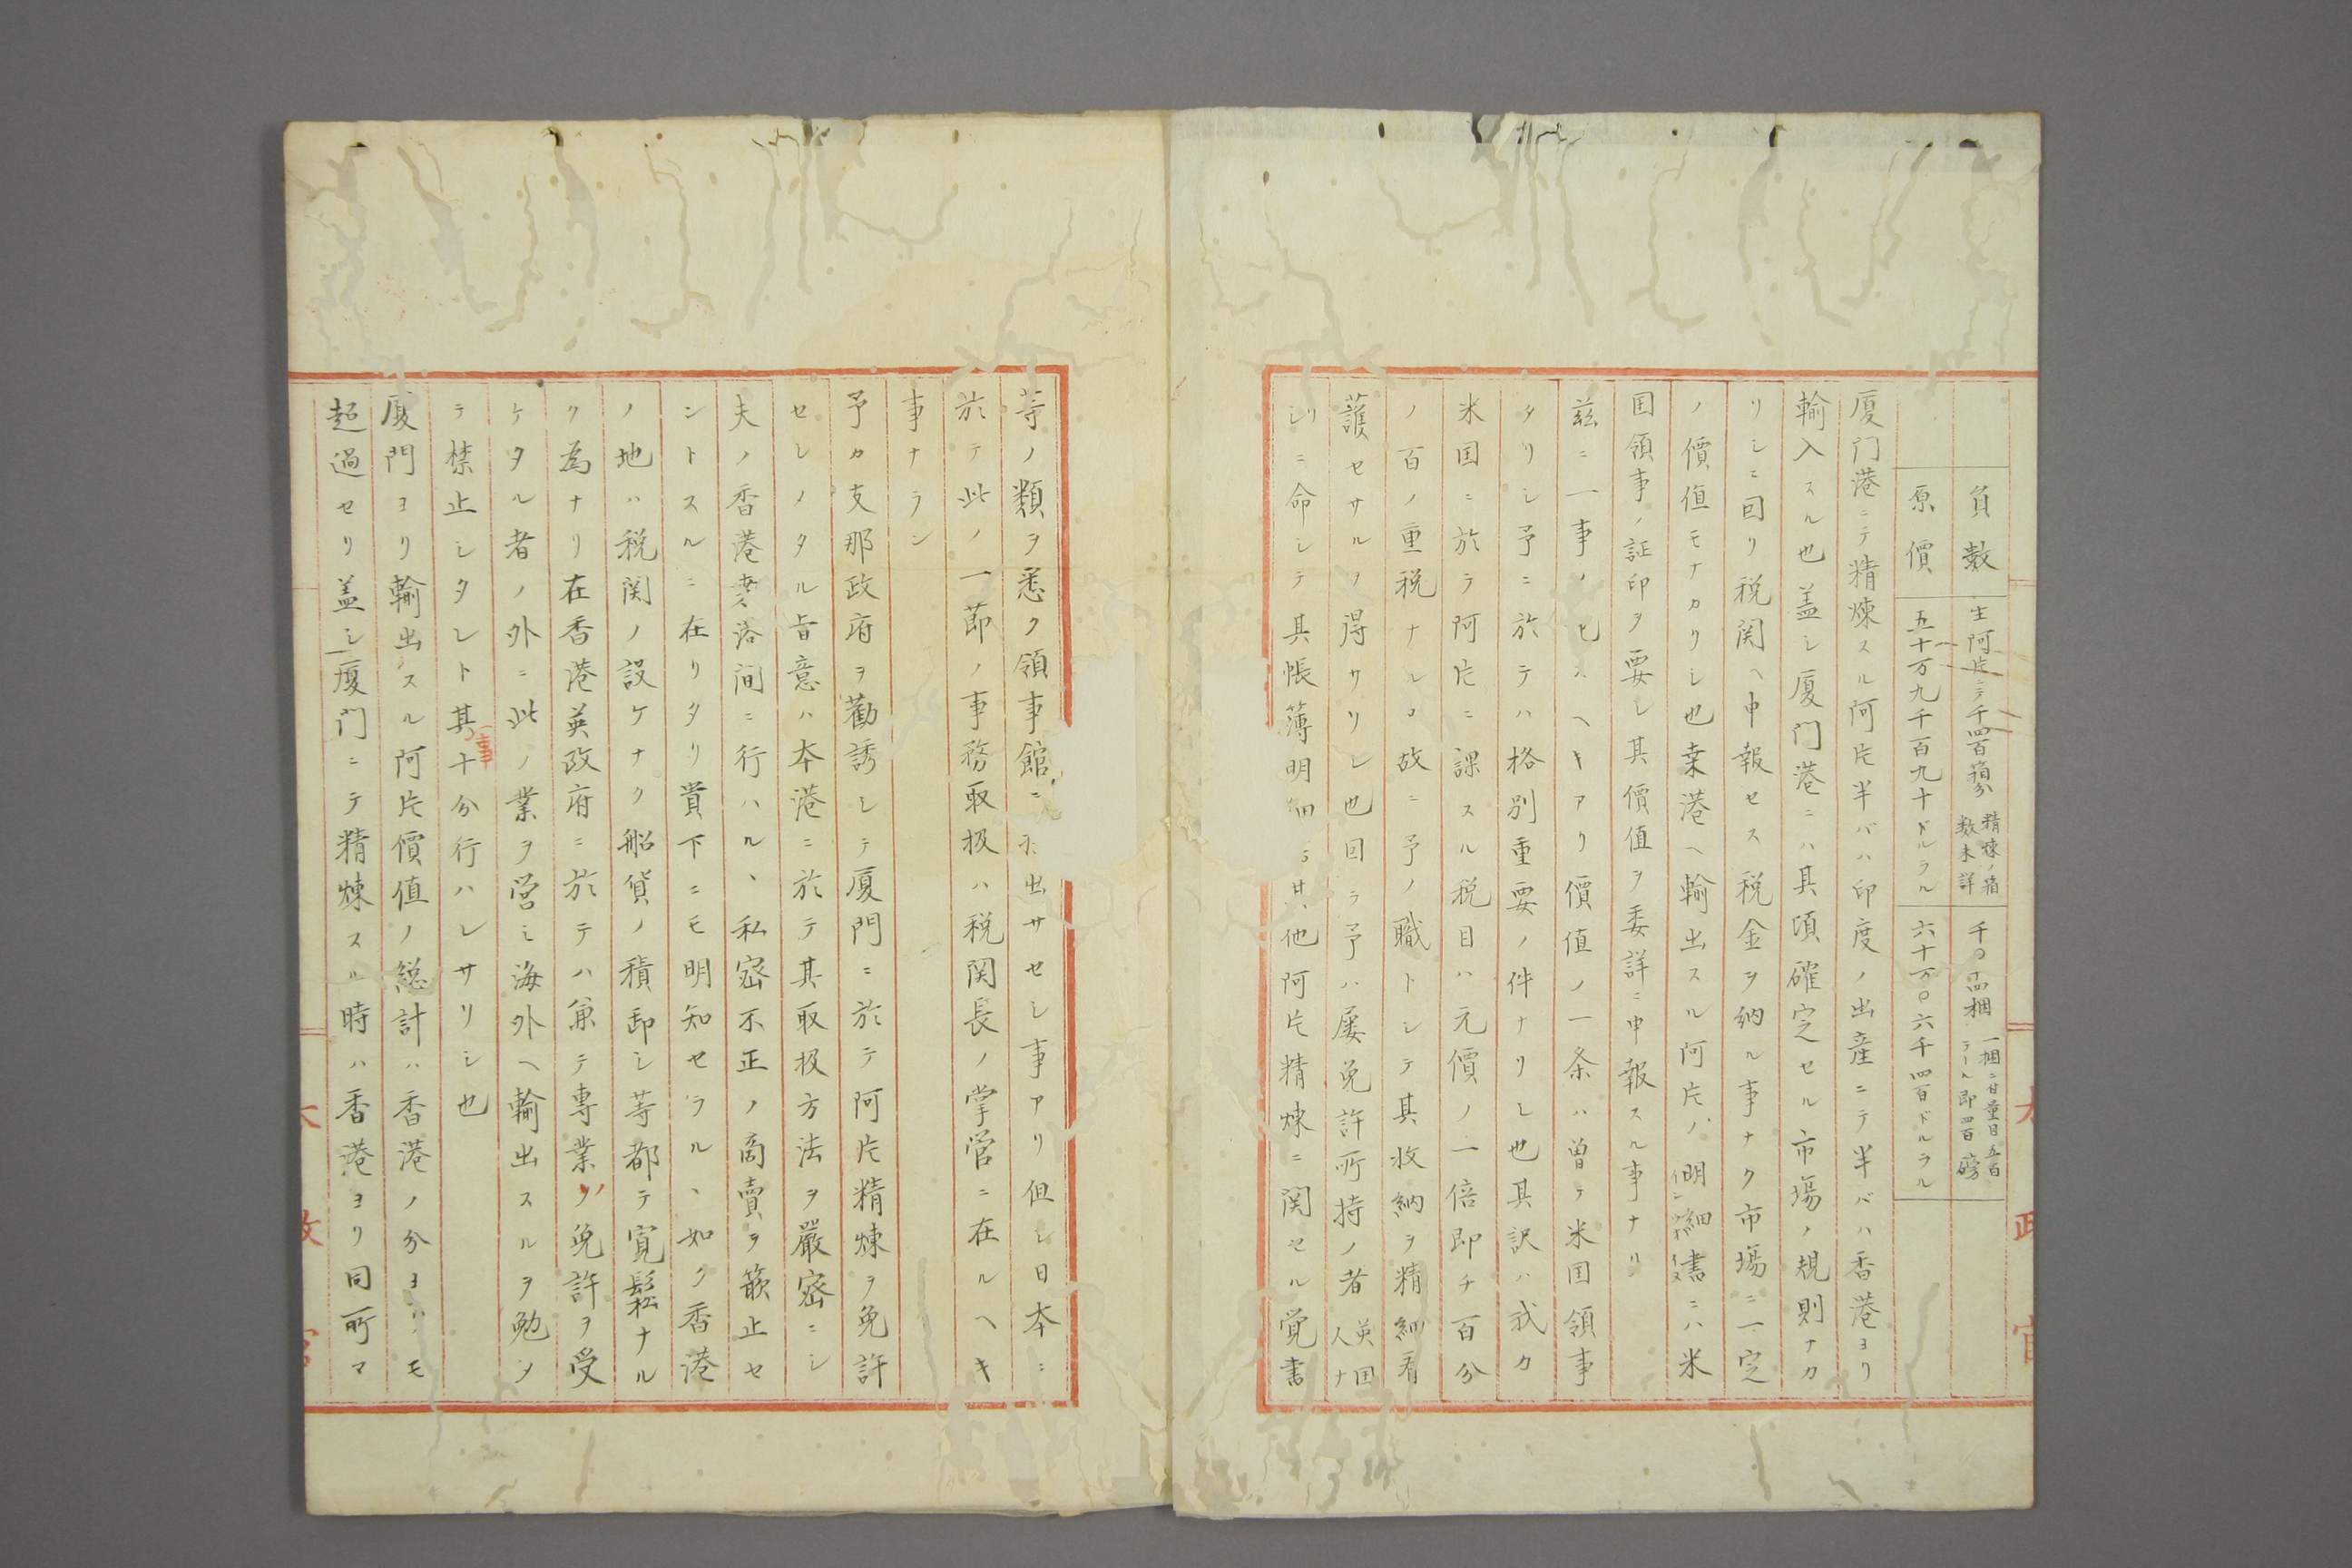 負數 生阿片ニテ千四百箱分 精煉ノ箱数未詳 千〇四梱 一梱ニ付量目五百テール即四百磅
原價 五十万九千百九十ドルラル 六十万〇六千四百ドルラル
厦门港ニテ精煉スル阿片半バハ印度ノ出産ニテ半バハ香港ヨリ
輸入スル也盖シ厦门港ニハ其頃確定セル市場ノ規則ナカ
リシニ回リ税関ヘ申報セス税金ヲ納ル事ナク市場ニ一定
ノ價值モナカリシ也業港ヘ輸出スル阿片ノ明細書ニハ米
国領事ノ証印ヲ要シ其價值ヲ委詳ニ申報スル事ナリ
茲ニ一事ノ ヘキアリ價值ノ一条ハ曽テ米国領事
タリシ予ニ於テハ格別重要ノ件ナリシ也其訳ハ我カ
米国ニ於テ阿片ニ課スル税目ハ元價ノ一倍即チ百分
ノ百ノ重税ナルヿ故ニ予ノ職トシテ其收納ヲ精細看
護セサルノ得サリシ也回テ予ハ屡免許所持ノ者英国人ナ
リシニ命シテ其帳薄明細 其他阿片精煉ニ関セル覚書
等ノ類ヲ悉ク領事館ニ 出サセシ事アリ但シ日本ニ
於テ此ノ一節ノ事務取扱ハ税関長ノ掌管ニ在ルヘキ
事ナラン
予カ支那政府ヲ勸誘シテ厦門ニ於テ阿片精煉ヲ免許
セシメタル旨意ハ本港ニ於テ其取扱方法ヲ嚴密ニシ
夫ノ香港 洛间ニ行ハル、私密不正ノ商賣ヲ禁止セ
ントスルニ在リタリ賞下ニモ明知セラル、如ク香港
ノ地ハ税関ノ設ケナク船貨ノ積卸シ等都テ寛鬆ナル
ク為ナリ在香港英政府ニ於テハ兼テ專業ノ免許ヲ受
ケタル者ノ外ニ此ノ業ヲ営シ海外ヘ輸出スルヲ勉メ
テ禁止シタレト其事十分行ハレサリシ也
厦門ヨリ輸出スル阿片價值ノ総計ハ香港ノ分ヨリハモ
超過セリ盖シ厦门ニテ精煉スル時ハ香港ヨリ同所マ
太政官
太政官